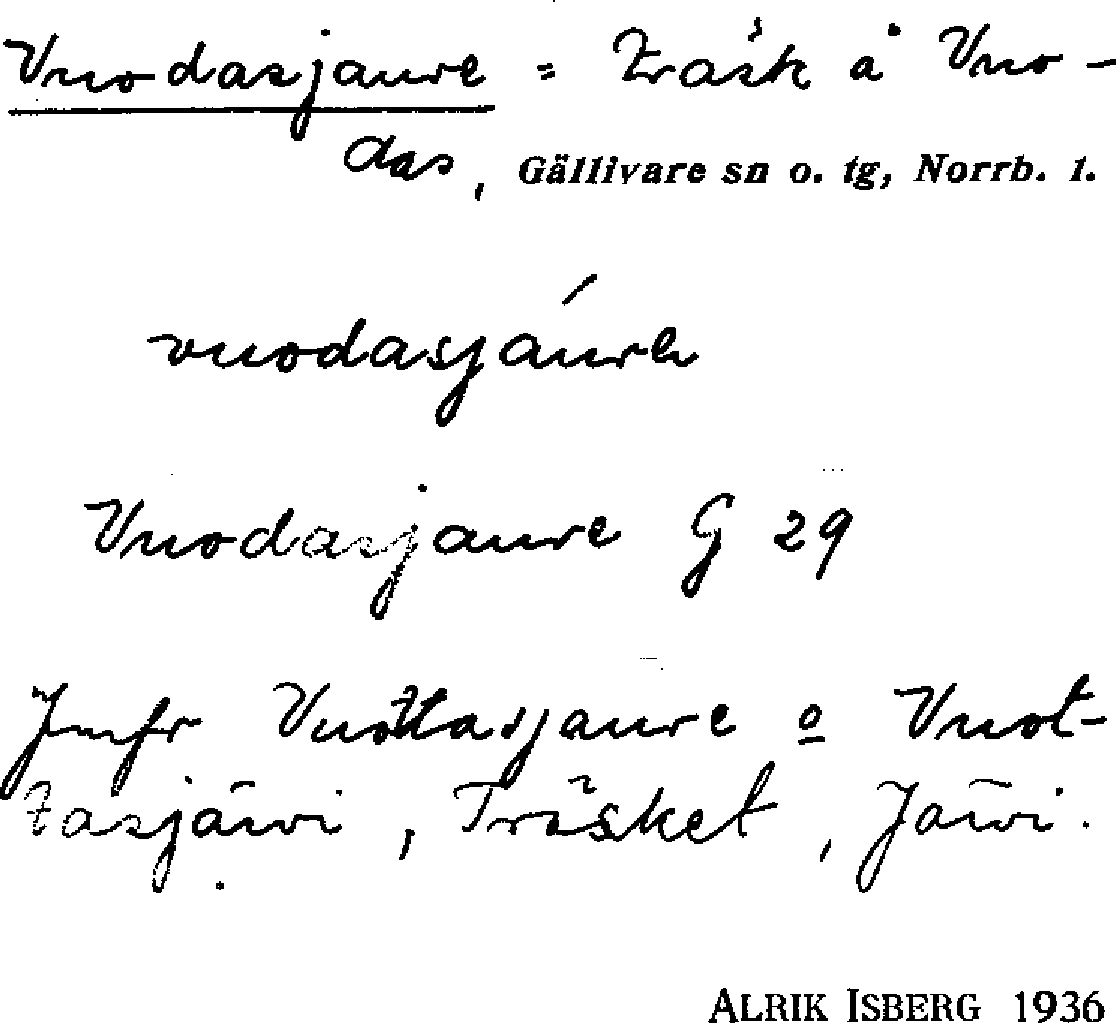 Vuodasjaure = Träsk å Vuo-
das, Gällivare sn o. tg, Norrb. l.
vuodasjáure
Vuodasjaure G 29
Jmfr Vuottasjaure o Vuot-
tasjärvi, Träsket, Järvi.
ALRIK ISBERG 1936